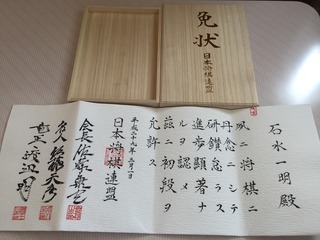 免状
日本将棋連盟
石水一明殿
夙ニ将棋ニ
丹念ニシテ
研鑽怠ラス
進歩顕著ナ
ルヲ認メ
茲ニ初段ヲ
允許ス
平成二十九年三月一日
日本将棋連盟
会長佐藤康光
名人佐藤天彦
竜王渡辺明